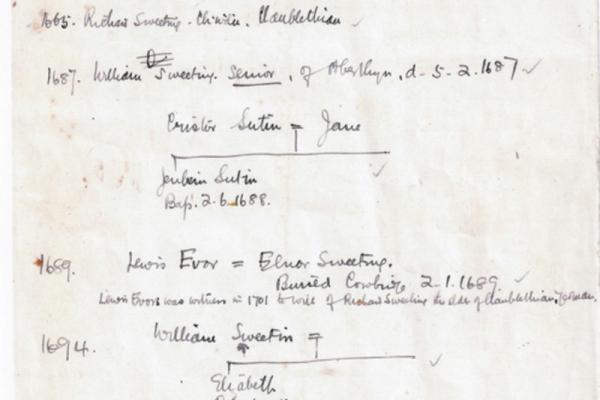 1665. Richard Sweeting - Llanblethian.
1687. William Sweeting. Senior, of Aberthyn, d- 5-2.1687
Cristor Sutin = Jane
Jenkin Sutin
Bap. 2.6.1688.
1689. Lewis Evor = Elnor Sweeting.
Buried Cowbridge 2-1.1689.
Lewis Evors was witness in 1701 to will of Richard Sweeting the elder of Llanblethian, Yeoman.
1694. William Sweetin =
Elizabeth